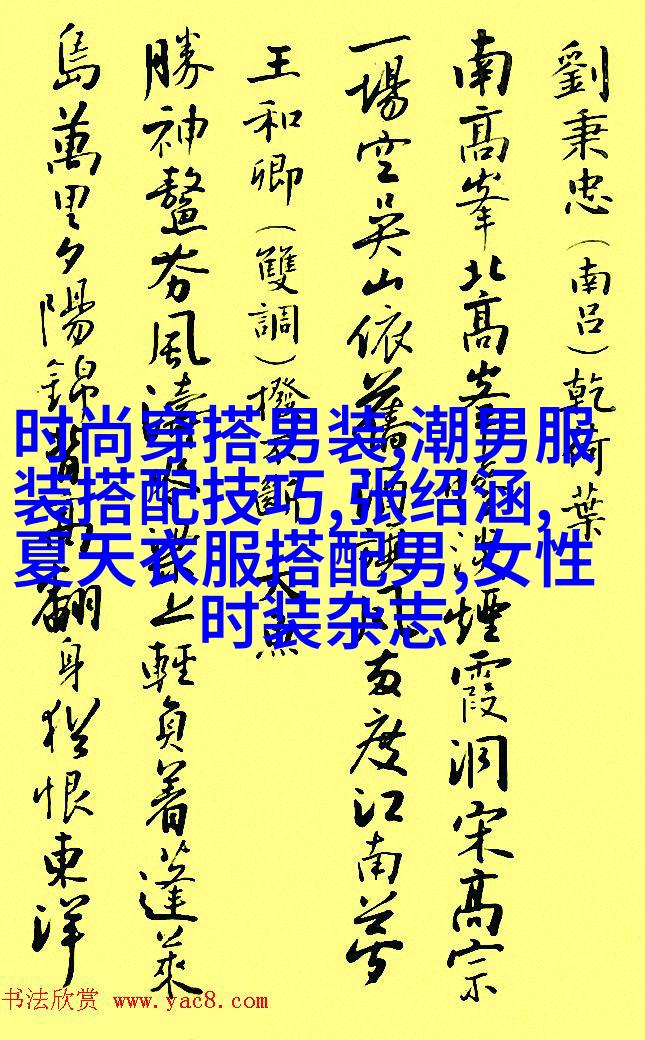 劉秉忠(南呂)乾荷葉
南高峯北高峯淡煙霞洞宋高宗
一場空吳山依舊風兩度江南夢
王和卿(雙調)撥不斷大魚
勝神鰲夯風濤上輕負着蓬萊
島萬里夕陽錦背高翻身猶恨東洋
时尚穿搭男装,潮男服
装搭配技巧,张绍涵,
夏天衣服搭配男,女性
时装杂志
书法欣赏 www.yac8.com